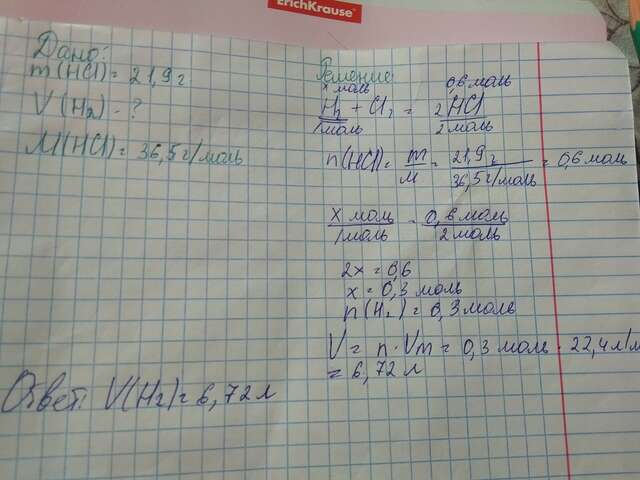 ErichKrause
Дано:
m(HCl) = 21,9 г
V(H₂) - ?
M(HCl) = 36,5 г/моль
Решение
x моль 0,6 моль
H₂ + Cl₂ = 2HCl
1 моль 2 моль
n(HCl) = m/M = 21,9 г/36,5 г/моль = 0,6 моль
x моль/1 моль = 0,6 моль/2 моль
2x = 0,6
x = 0,3 моль
n(H₂) = 0,3 моль
V = n · Vm = 0,3 моль · 22,4 л/м
= 6,72 л
Ответ: V(H₂) = 6,72 л